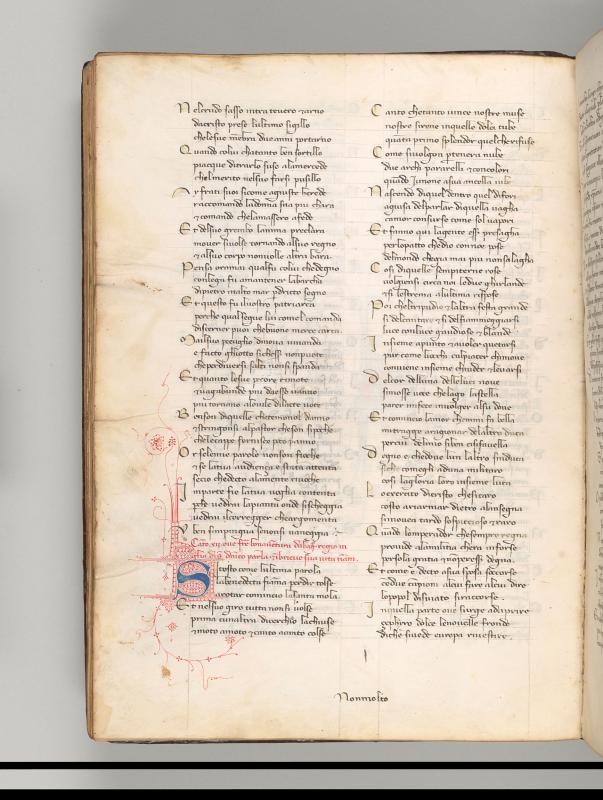 Nelcrudo sasso intra tevero & arno
dacristo prese lultimo sigillo
chelesue membra due anni portarno
Quando colui chatanto ben sortillo
piacque ditrarlo suso alamercede
chelmerito nelsuo farsi pusillo
Ay frati suoi sicome agiuste herede
raccomando ladonna sua piu chara
& comando chelamassero afede
Et delsuo grembo lanima preclara
mover sivolse tornando alsuo regno
& alsuo corpo nonuolle altra bara
Pensa oramai qualfu colui chedegno
collega fu amantener labarcha
dipietro inalto mar pdricto segno
Et questo fu ilnostro patriarca
perche qualsegue lui comel comanda
discerner puoi chebuone merce carca
Mailsuo peculio dinova vivanda
e facto ghiotto sichessi nonpuote
cheperdiversi salti nonsi spanda
Et quanto lesue pecore remote
& vagabunde piu daesso vanno
piu tornano alovile dilacte vote
Benson diquelle chetemonol danno
& stringonsi alpastor cheson sipoche
chelecappe fornisce poco panno
Or selemie parole nonson fioche
& se latua audienza e stata attenta
secio chedecto alamente rivoche
In parte fia latua voglia contenta
pche vedrai lapianta onde sischeggia
vedrai ilcorregger cheargomenta
V ben simpingua senonsi vaneggia
Si tosto come lultima parola
labenedecta fiama perdir tolse
arotar comincio lasanta mola
Et nelsuo giro tutta nonsi volse
prima cunaltra dicerchio lachiuse
& moto amoto & canto acanto colse
Canto chetanto vince nostre muse
nostre sirene inquelle dolci tube
quanto primo splendor quelcherifuse
Come sivolgon ptenera nube
due archi pararelli & concolori
quado Junone asua ancella iube
Nascendo diquel dentro quel difori
aguisa delparlar diquella vagha
camor consunse come sol vapori
Et fanno qui lagente esser presagha
perlopatto chedio connoe pose
delmondo chegia mai piu nonsalagha
Cosi diquelle sempiterne rose
volgensi circa noi ledue ghirlande
& si lestrema alultima rispose
Poi cheltripudio & laltra festa grande
si delcantare & si delfiammeggiarsi
luce conluce gaudiose & blande
Insieme apunto & avoler quetarsi
pur come liocchi calpiacer chimove
conviene insieme chiuder & levarsi
Delcor delluna delleluci nove
simosse voce chelago lastella
parer mifece involger alsu dove
Et comincio lamor chemmi fa bella
mitragge aragionar delaltro duca
percui delmio siben cisifavella
Degno e chedove lun laltro sinduca
siche comegli aduna militaro
cosi lagloria loro insieme luca
Lexercito dicristo chesicaro
costo ariarmar dietro alansegna
simovea tardo sospeccioso & raro
Quado lomperador chesempre regna
provide alamilitia chera inforse
persola gratia & nonperesser degna
Et come e decto asua sposa soccorse
condue campioni alcui fare alcui dire
lopopol disviato siraccorse
Inquella parte ove surge adaprire
zephiro dolce lenovelle fronde
diche sivede europa rivestire
Nonmolto